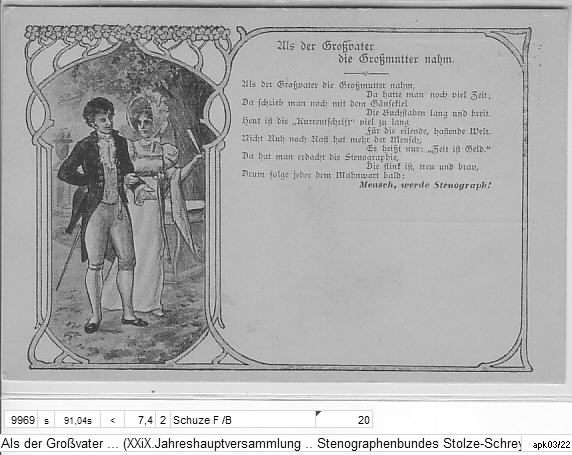 Als der Großvater
die Großmutter nahm.
Als der Großvater die Großmutter nahm,
Da hatte man noch viel Zeit;
Da schrieb man noch mit dem Gänsekiel
Die Buchstaben lang und breit.
Heut ist die „Kurrentschrift" viel zu lang
Für die eilende, hastende Welt.
Nicht Ruh noch Rast hat mehr der Mensch,
Es heißt nur: „Zeit ist Geld."
Da hat man erdacht die Stenographie,
Die flink ist, treu und brav,
Drum folge jeder dem Mahnwort bald:
Mensch, werde Stenograph!
9969 s 91,04s < 7,4 2 Schuze F /B 20
Als der Großvater ... (XXiX.Jahreshauptversammlung .. Stenographenbundes Stolze-Schrey apk03/22